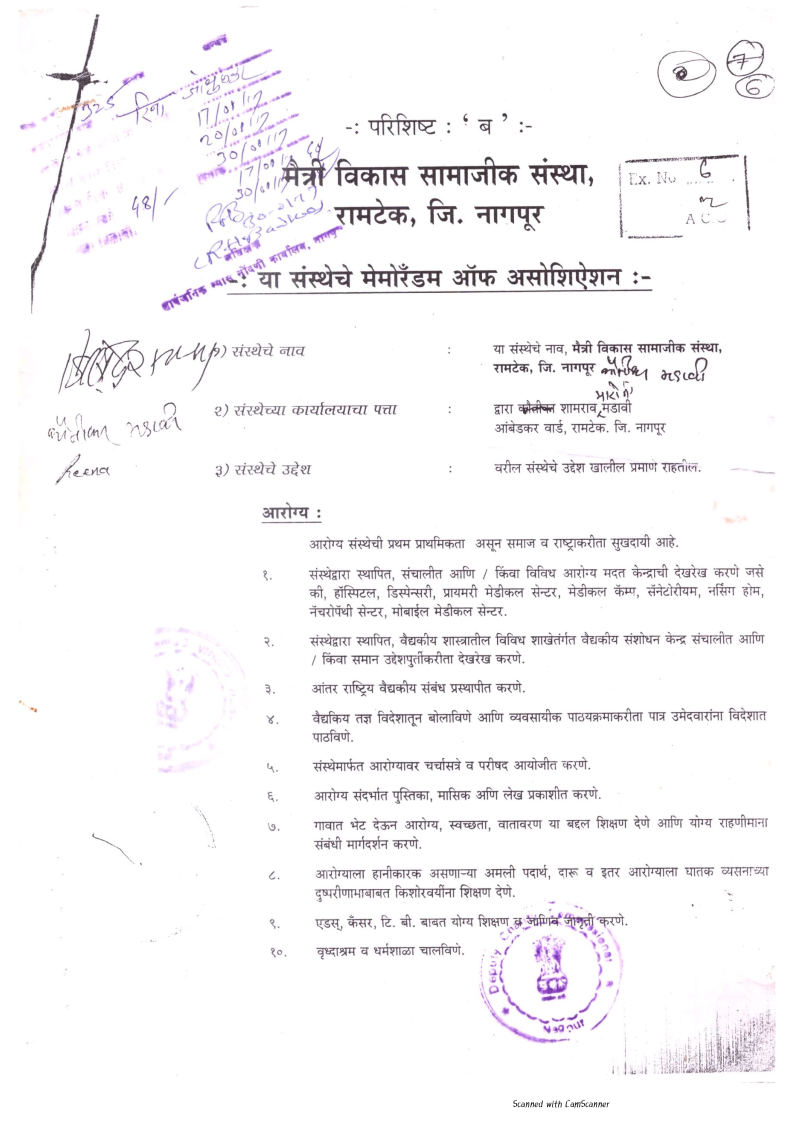 ७
६
325 रिना गोकुळ
17/01/17
20/01/17
30/01/17
17/01/17
30/01/17
48/-
सार्वजनिक न्यास नोंदणी कार्यालय, नागपूर
-: परिशिष्ट : ‘ ब ’ :-
मैत्री विकास सामाजीक संस्था,
रामटेक, जि. नागपूर
Ex. No 6
A C C
-: या संस्थेचे मेमोरँडम ऑफ असोशिऐशन :-
१) संस्थेचे नाव : या संस्थेचे नाव, मैत्री विकास सामाजीक संस्था,
रामटेक, जि. नागपूर
मडावी
मारोती
२) संस्थेच्या कार्यालयाचा पत्ता : द्वारा शामराव मडावी
आंबेडकर वार्ड, रामटेक. जि. नागपूर
मडावी
Reena
३) संस्थेचे उद्देश : वरील संस्थेचे उद्देश खालील प्रमाणे राहतील.
आरोग्य :
आरोग्य संस्थेची प्रथम प्राथमिकता असून समाज व राष्ट्राकरीता सुखदायी आहे.
१. संस्थेद्वारा स्थापित, संचालीत आणि / किंवा विविध आरोग्य मदत केन्द्राची देखरेख करणे जसे
की, हॉस्पिटल, डिस्पेन्सरी, प्रायमरी मेडीकल सेन्टर, मेडीकल कॅम्प, सॅनेटोरीयम, नर्सिंग होम,
नॅचरोपॅथी सेन्टर, मोबाईल मेडीकल सेन्टर.
२. संस्थेद्वारा स्थापित, वैद्यकीय शास्त्रातील विविध शाखेतंर्गत वैद्यकीय संशोधन केन्द्र संचालीत आणि
/ किंवा समान उद्देशपुर्तीकरीता देखरेख करणे.
३. आंतर राष्ट्रिय वैद्यकीय संबंध प्रस्थापीत करणे.
४. वैद्यकिय तज्ञ विदेशातून बोलाविणे आणि व्यवसायीक पाठयक्रमाकरीता पात्र उमेदवारांना विदेशात
पाठविणे.
५. संस्थेमार्फत आरोग्यावर चर्चासत्रे व परीषद आयोजीत करणे.
६. आरोग्य संदर्भात पुस्तिका, मासिक अणि लेख प्रकाशीत करणे.
७. गावात भेट देऊन आरोग्य, स्वच्छता, वातावरण या बद्दल शिक्षण देणे आणि योग्य राहणीमाना
संबंधी मार्गदर्शन करणे.
८. आरोग्याला हानीकारक असणाऱ्या अमली पदार्थ, दारू व इतर आरोग्याला घातक व्यसनाच्या
दुष्परीणामाबाबत किशोरवयींना शिक्षण देणे.
९. एडस्, कॅंसर, टि. बी. बाबत योग्य शिक्षण व जाणिव जागृती करणे.
१०. वृध्दाश्रम व धर्मशाळा चालविणे.
Scanned with CamScanner